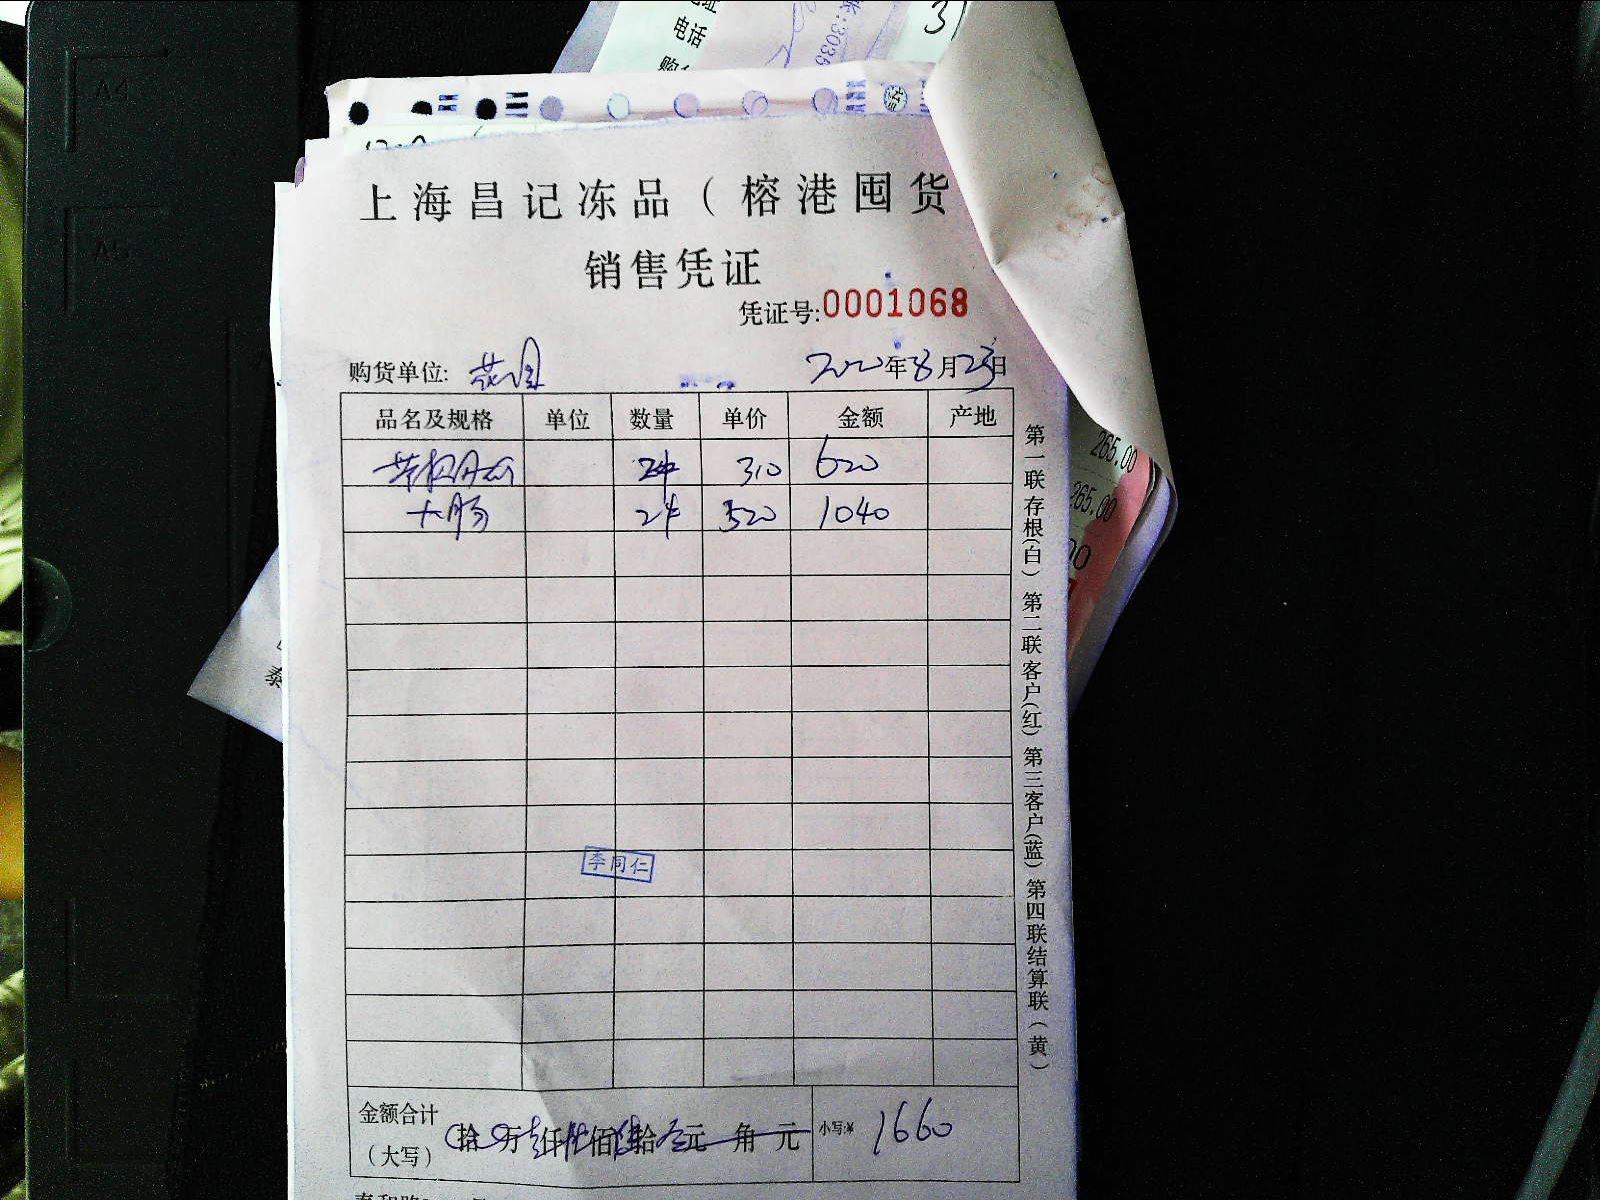 A4
A5
电话
3
上海昌记冻品（榕港囤货
销售凭证
凭证号:0001068
购货单位:
2020年8月23日
品名及规格 单位 数量 单价 金额 产地
2件 310 620
大肠 2件 520 1040
李同仁
金额合计
（大写）
拾 万 仟 佰 拾 元 角 元 小写:¥ 1660
第一联存根(白) 第二联客户(红) 第三客户(蓝) 第四联结算联(黄)
265.00
265.00
泰